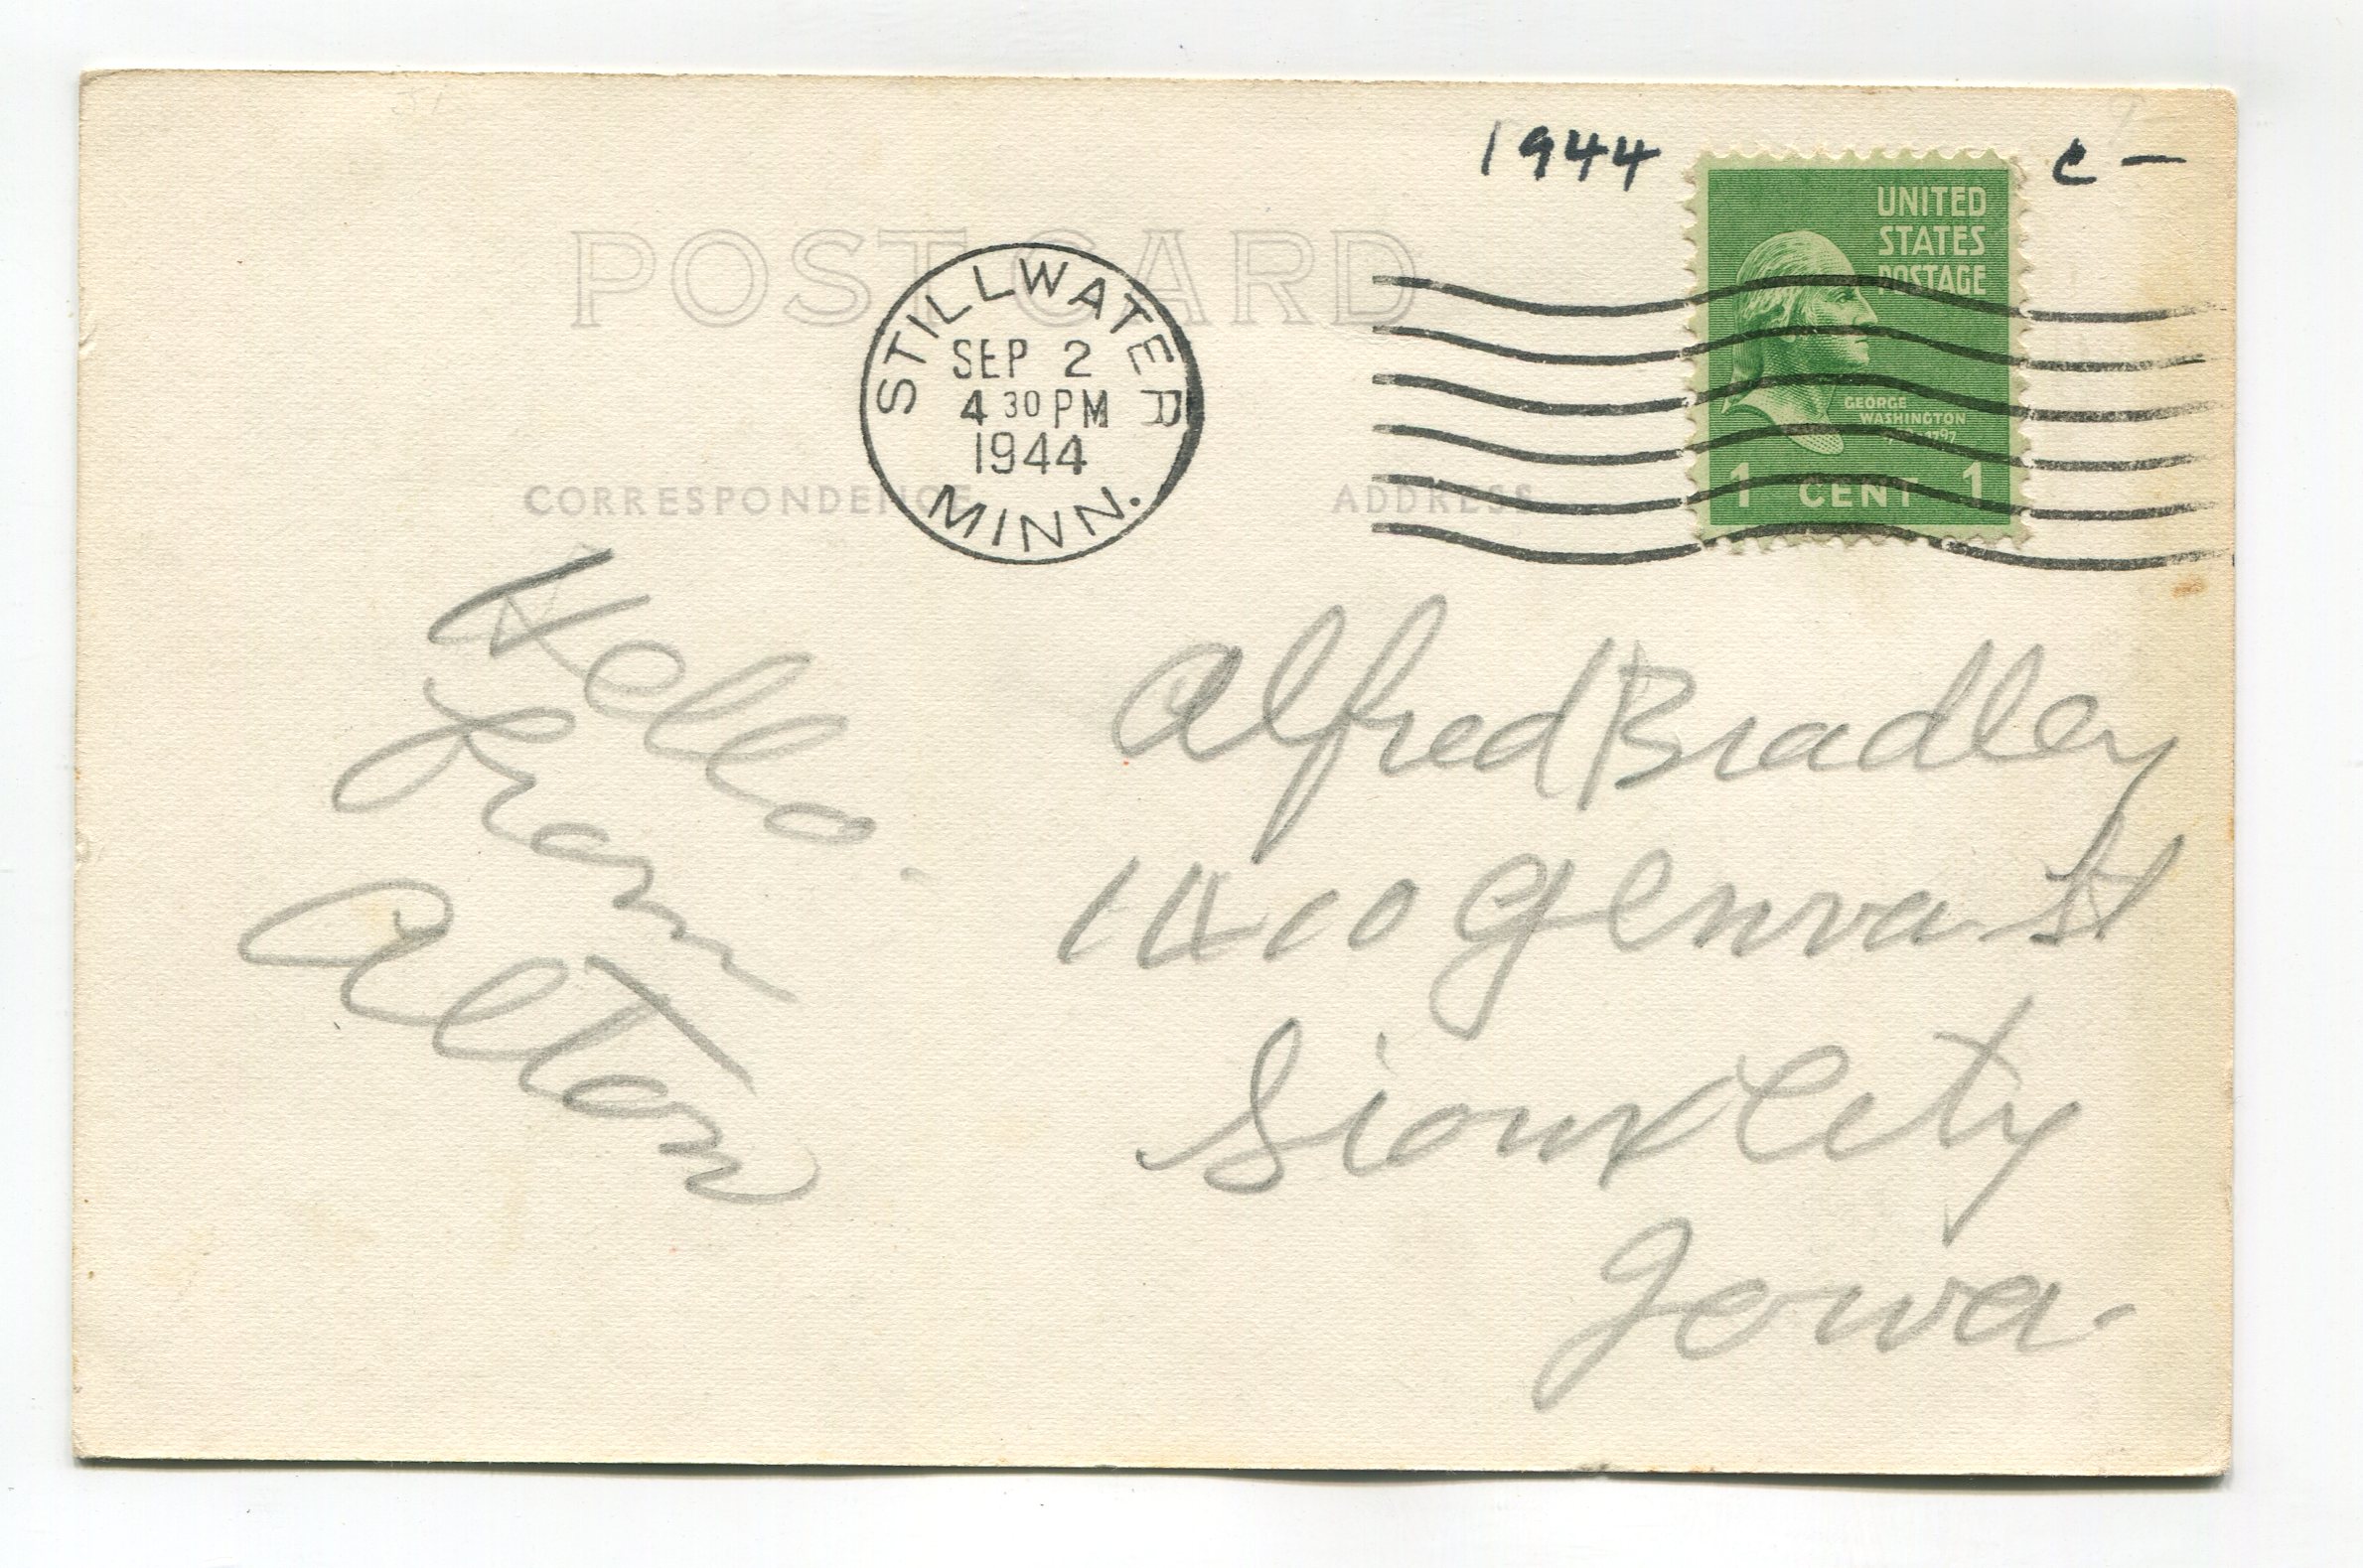 1944 c –
UNITED
STATES
POSTAGE
GEORGE
WASHINGTON
1 CENT 1
POST CARD
STILLWATER
SEP 2
4 30 PM
1944
MINN.
CORRESPONDENCE
ADDRESS
Hello
From
Alton
Alfred Bradley
1410 Genva St
Sioux City
Iowa